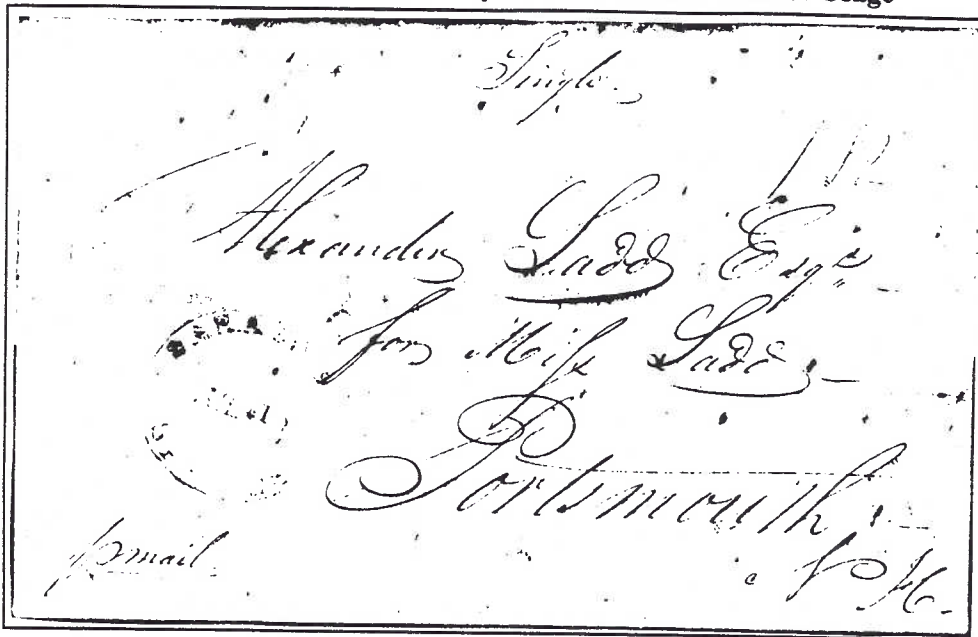 Single
Alexander Ladd Esqe
for Miss Ladd
Portsmouth
N H.
p mail